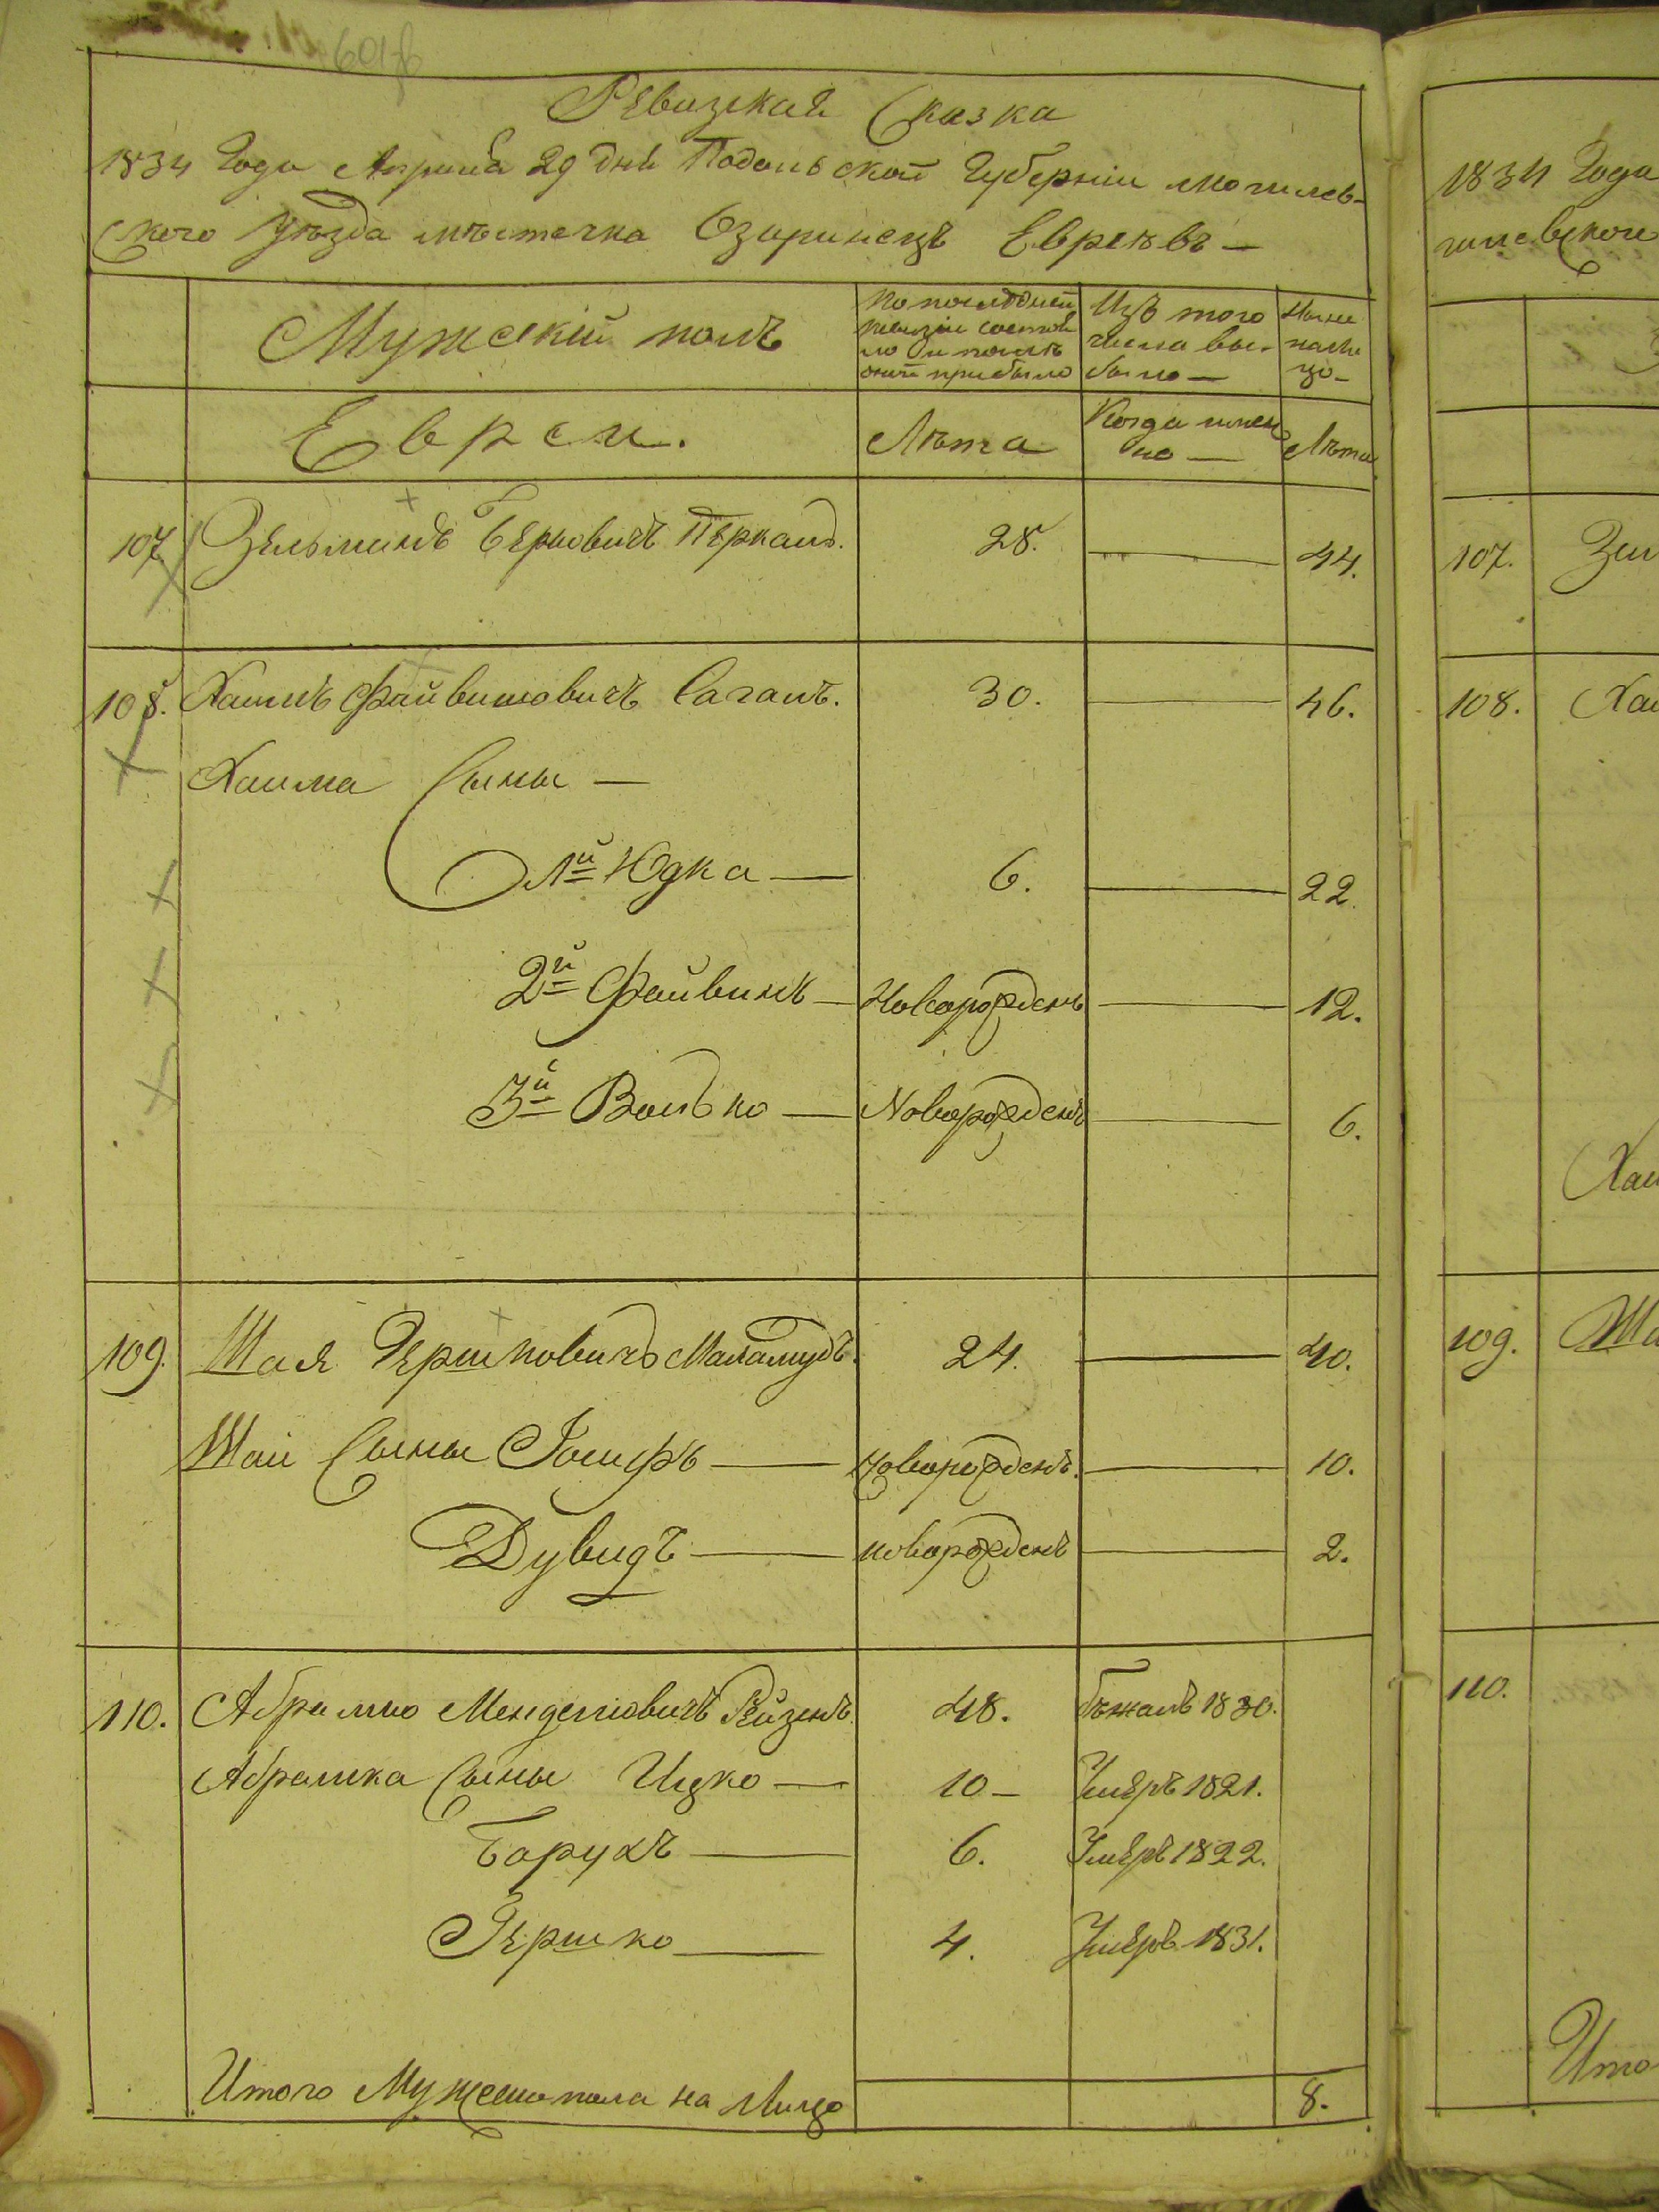 Ревизская Сказка
1834 Года Апреля 29 дня Подольской Губернии Могилев-
ского Уезда местечка Озаринецъ Евреевъ —
Мужескій полъ
По последней ревизіи состояло и после оной прибыло
Изъ того числа выбыло —
Ныне налицо —
Евреи.
Лѣта
Когда именно —
Лѣта
107 Зельманъ Берковичъ Перкалъ. 28. — 44.
108. Хаимъ Файвишовичъ Саганъ. 30. — 46.
Хаима Сыны —
1й Юдка — 6. — 22.
2й Файвишъ — Новорожденъ — 12.
3й Волько — Новорожденъ — 6.
109. Шая Гершковичъ Маламудъ. 24. — 40.
Шаи Сыны Іосифъ — новорожденъ. — 10.
Дувидъ — новорожденъ — 2.
110. Абрамко Менделiовичъ Рейзенъ. 48. бѣжалъ 1830.
Абрамка Сыны Ицко — 10 — Умеръ 1821.
Борухъ — 6. Умеръ 1822.
Гершко — 4. Умеръ 1831.
Итого Мужеска пола на Лицо 8.
1834 Года
гилевского
107. Зел
108. Хаи
Хаи
109. Ша
110.
Ито